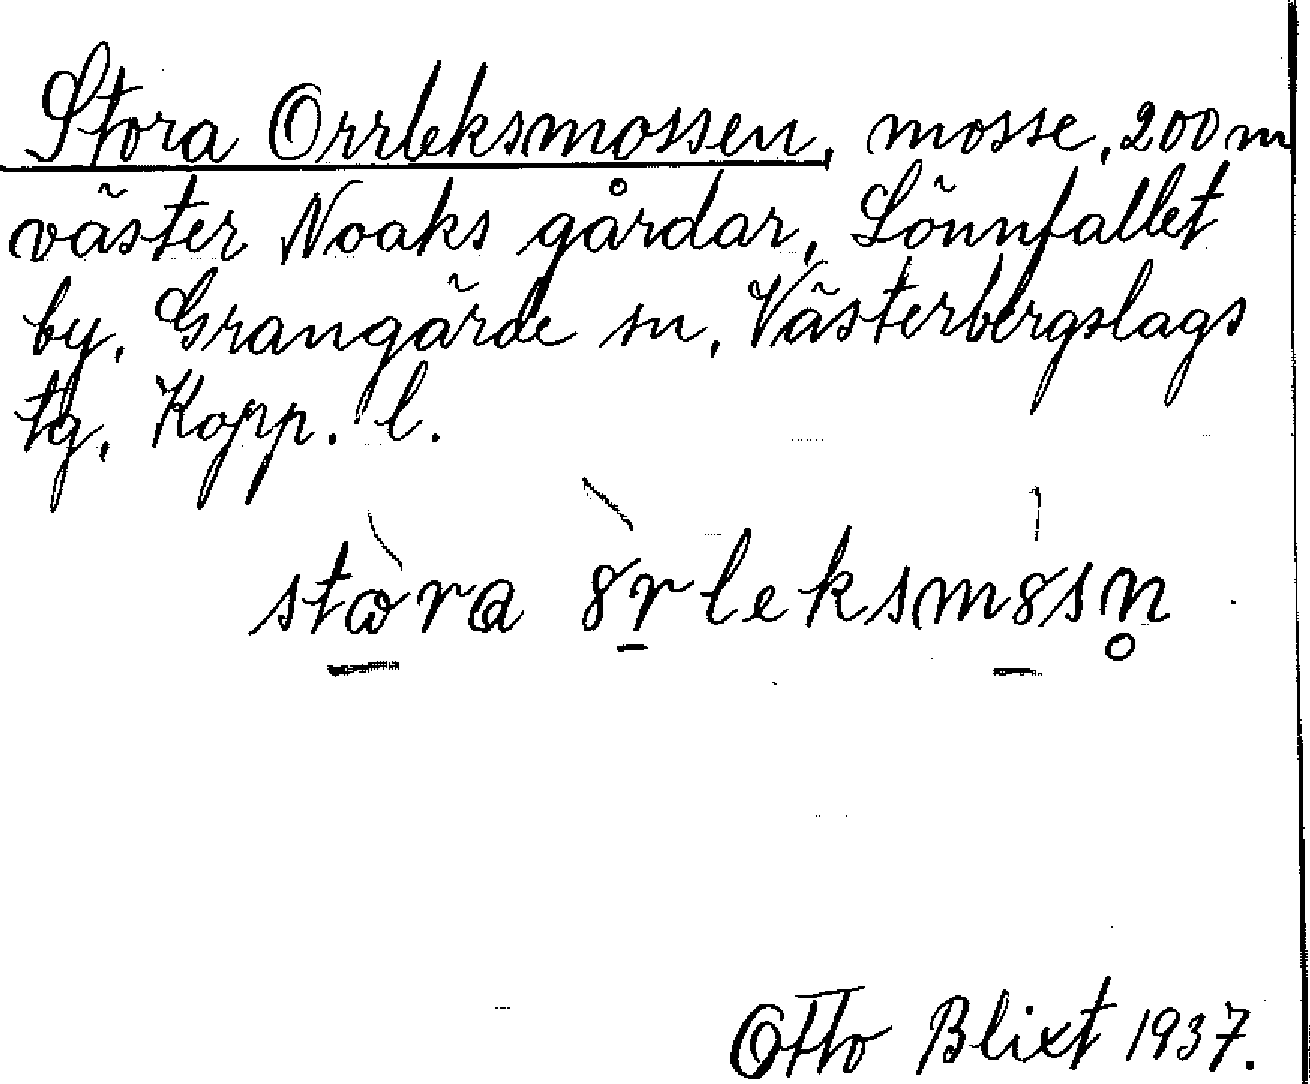 Stora Orrleksmossen, mosse, 200 m
väster Noaks gårdar, Lönnfallet
by, Grangärde sn, Västerbergslags
tg, Kopp. l.
stωra 8̀rleksm8sn̥
Otto Blixt 1937.